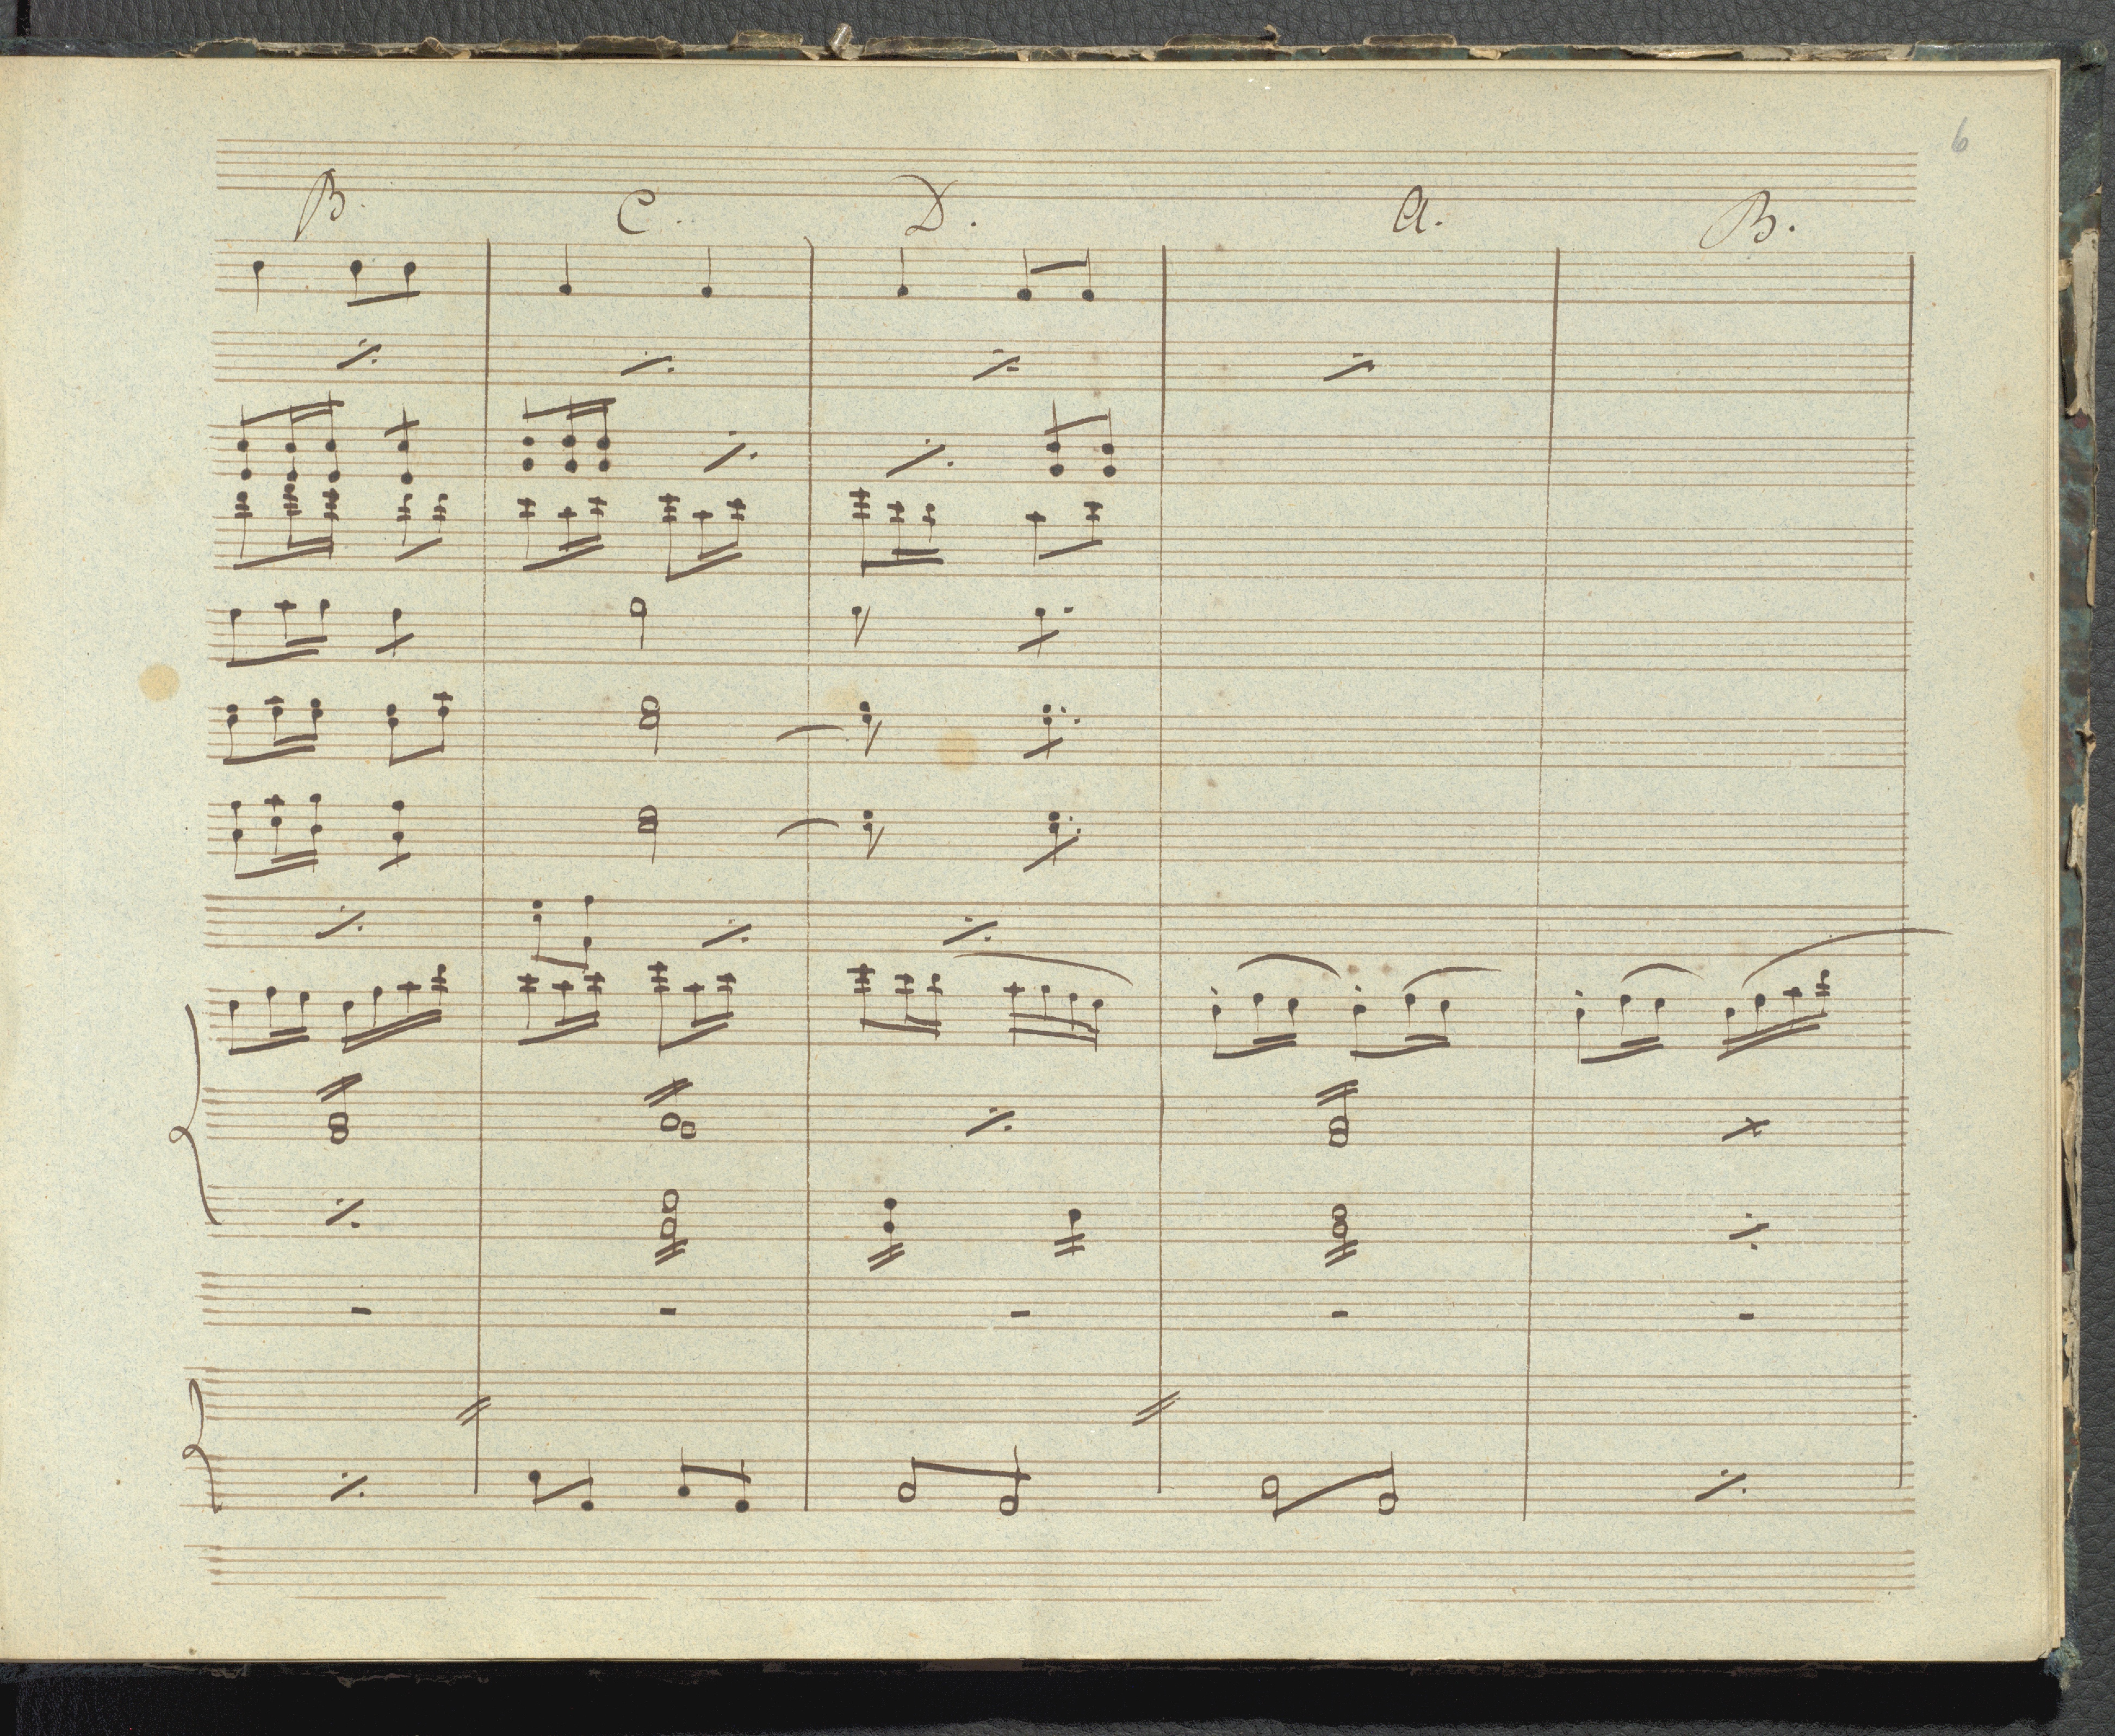 6
B. C. D. A. B.